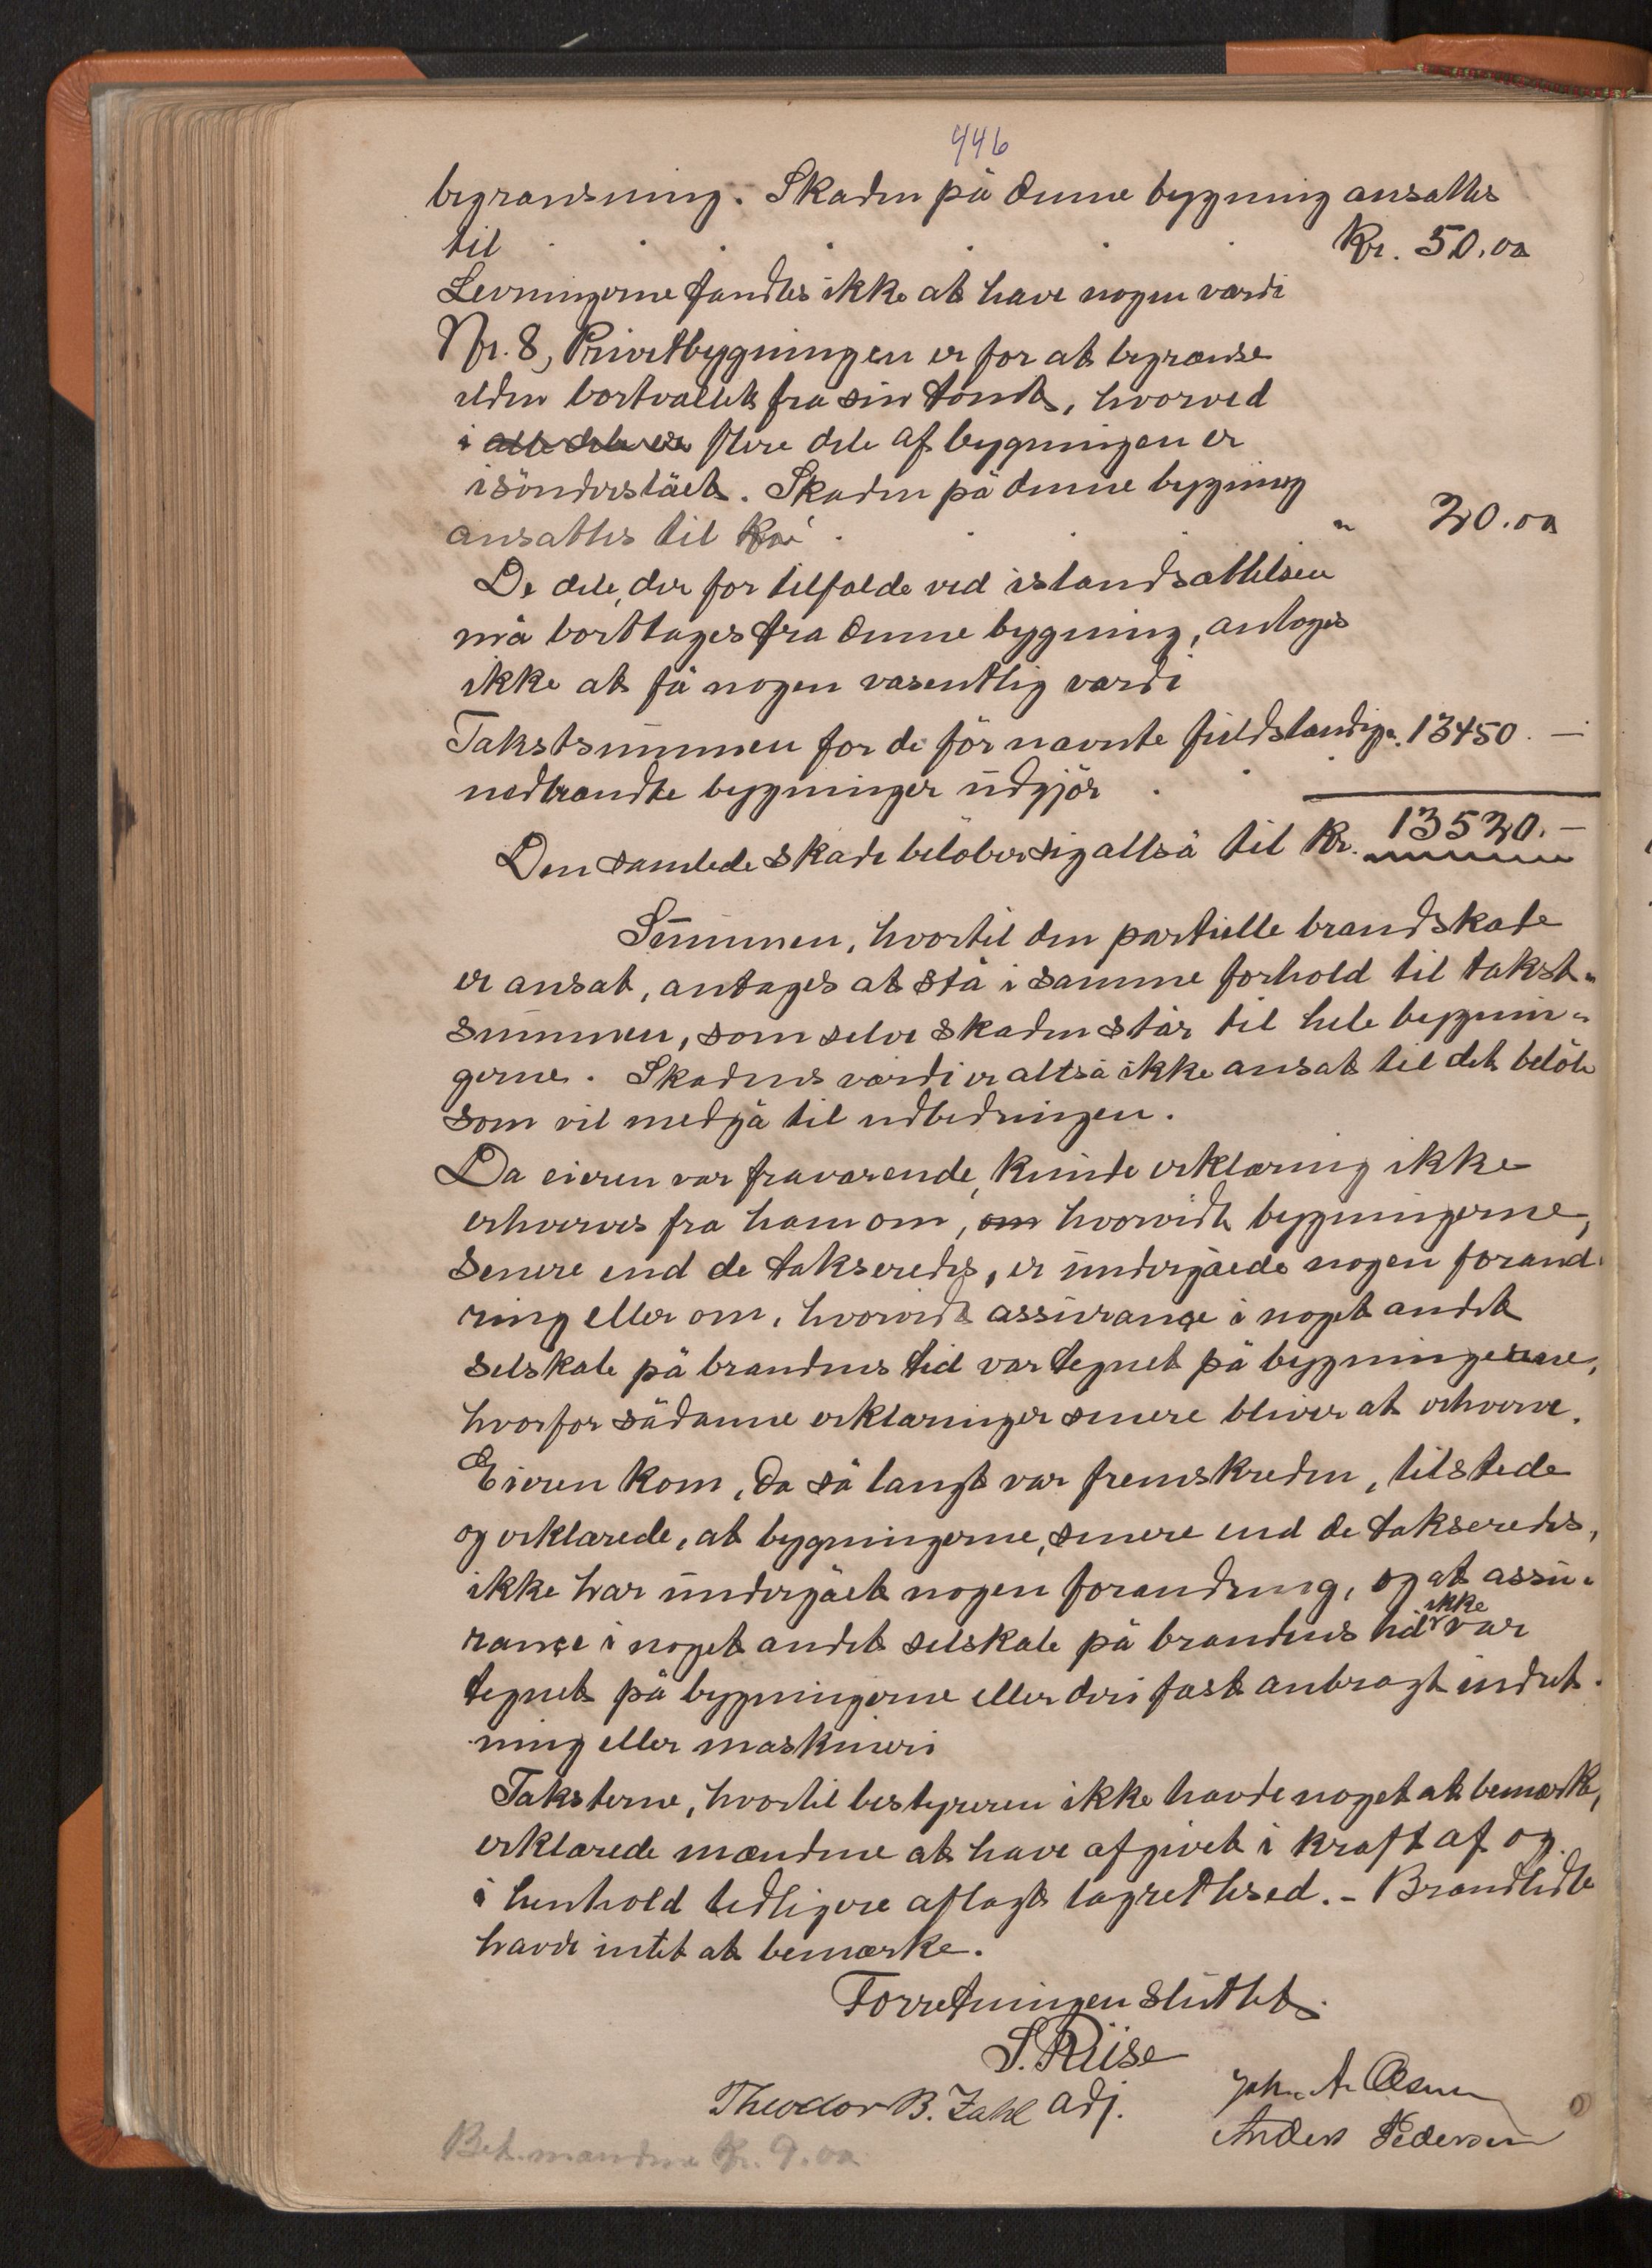 446
begrænsning. Skaden på denne bygning ansattes
til . . . . . . Kr. 50.00
Levningerne fandtes ikke at have nogen værdi
Nr. 8, Privetbygningen er for at begrænse
ilden bortvæltet fra sin tomt, hvorved
i flere dele af bygningen er
isönderslået. Skaden på denne bygning
ansattes til Kr. . . . " 20.00
De dele, der for tilfælde ved istandsættelsen
må borttages fra denne bygning, antages
ikke at få nogen væsentlig værdi
Takstsummen for de för nævnte fuldstændige 13450.—
nedbrændte bygninger udgjör . .
Den samlede skade belöber sig altså til Kr. 13520.—
Summen, hvortil den partielle brandskade
er ansat, antages at stå i samme forhold til takst-
summen, som selve skaden står til hele bygnin-
gerne. Skadens værdi er altså ikke ansat til det belöb
som vil medgå til udbedringen.
Da eieren var fraværende, kunde erklæring ikke
erhverves fra ham om, om hvorvidt bygningerne,
senere end de takseredes, er undergåede nogen forand-
ring eller om, hvorvidt assurançe i noget andet
selskab på brandens tid var tegnet på bygningerne,
hvorfor sådanne erklæringer senere bliver at erhverve.
Eieren kom, da så langt var fremskreden, tilstede
og erklærede, at bygningerne, senere end de takseredes,
ikke har undergået nogen forandring, og at assu-
rançe i noget andet selskab på brandens tid ikke var
tegnet på bygningerne eller deri fast anbragt indret-
ning eller maskineri
Taksterne, hvortil bestyreren ikke havde noget at bemærke,
erklærede mændene at have afgivet i kraft af og
i henhold tidligere aflagt lagrettesed. – Brandlidte
havde intet at bemærke.
Forretningen sluttet.
S. Riise
Theodor B. Zahl adj. Joh. A. Olsen
Anders Pedersen
Bet. mændene Kr. 9.00